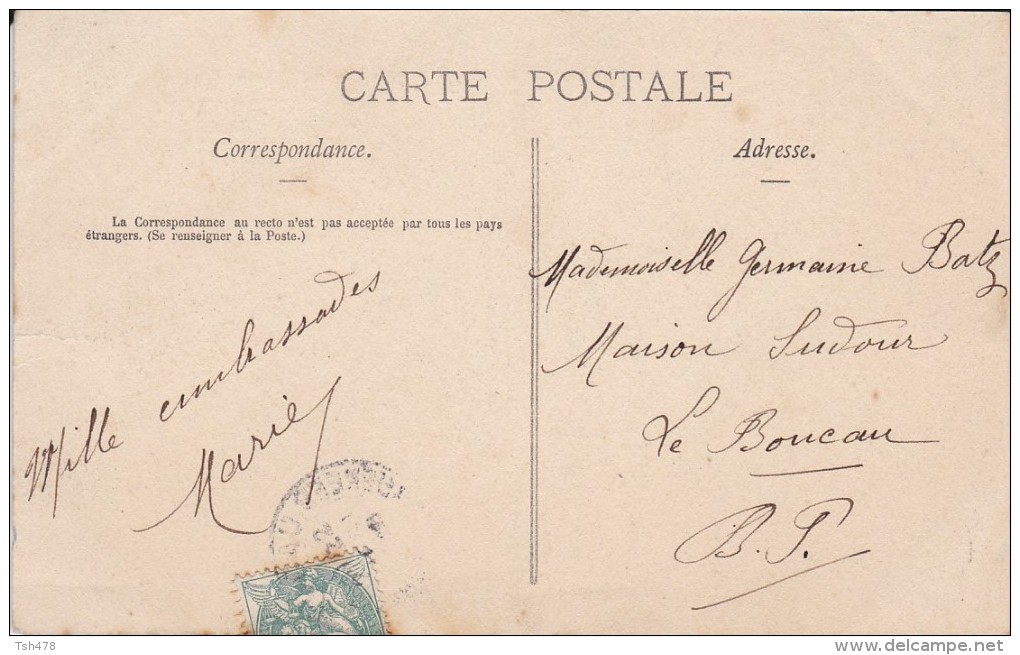 CARTE POSTALE
Correspondance.
La Correspondance au recto n'est pas acceptée par tous les pays
étrangers. (Se renseigner à la Poste.)
Mille embrassades
Marie
Adresse.
Mademoiselle Germaine Batz
Maison Sudour
Le Boucau
B. P.
Tsh478
delcampe.net